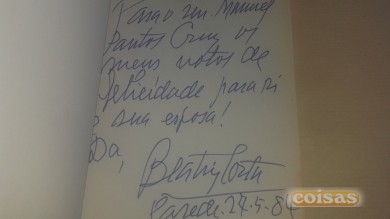 Para o Snr. Manuel
Santos Cruz os
meus votos de
felicidade para si
e sua esposa!
Da,
Beatriz Costa
27.5.84
coisas